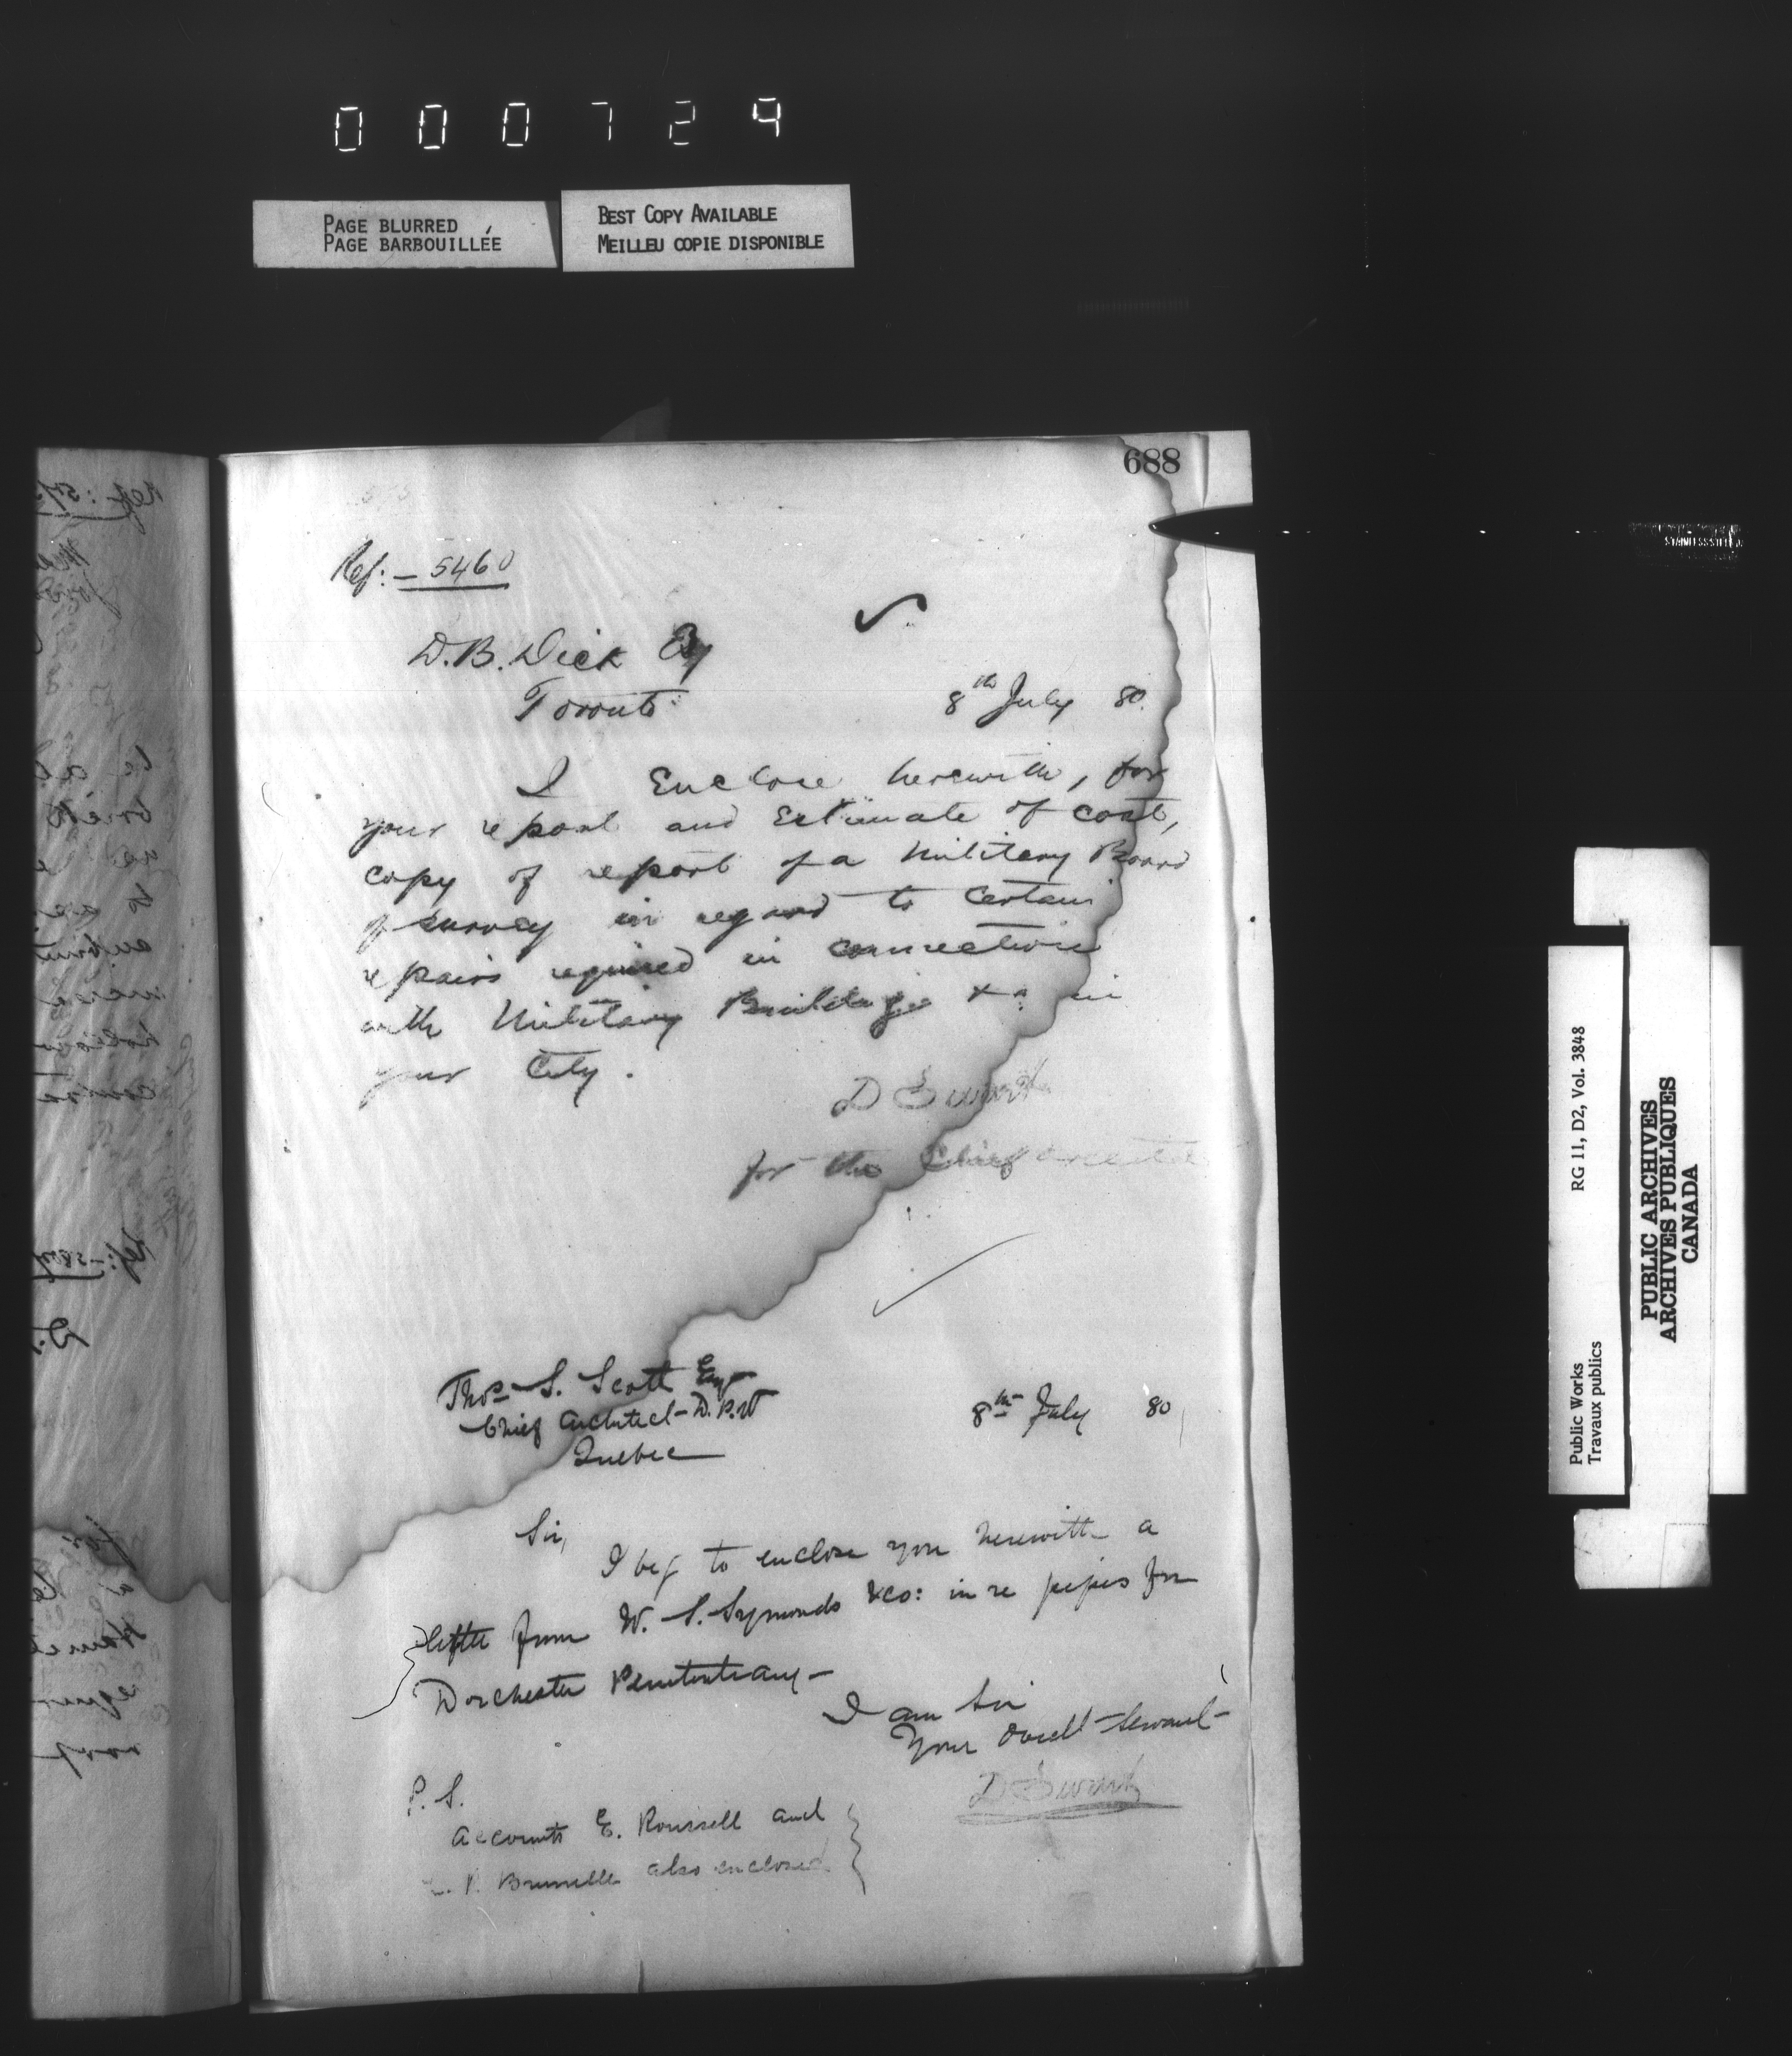 000724
PAGE BLURRED
PAGE BARBOUILLÉE
BEST COPY AVAILABLE
MEILLEU COPIE DISPONIBLE
688
Ref: – 5460
D. B. Dick Esq
Toronto
8th July 80.
I Enclose herewith, for
your report and Estimate of cost,
copy of report of a Military Board
of survey in regard to certain
repairs required in connection
with Military Buildings &c in
your City.
D Ewart
for the Chief Architect
Thos S. Scott Esq
Chief Architect – D. P. W
Quebec
8th July 80
Sir,
I beg to enclose you herewith a
letter from W. S. Symonds & Co: in re pipes for
Dorchester Penitentiary –
I am Sir
Your Obedt Servant
D Ewart
P. S.
Accounts E. Roussell and
P. Brunelle also enclosed
RG 11, D2, Vol. 3848
Public Works
Travaux publics
PUBLIC ARCHIVES
ARCHIVES PUBLIQUES
CANADA